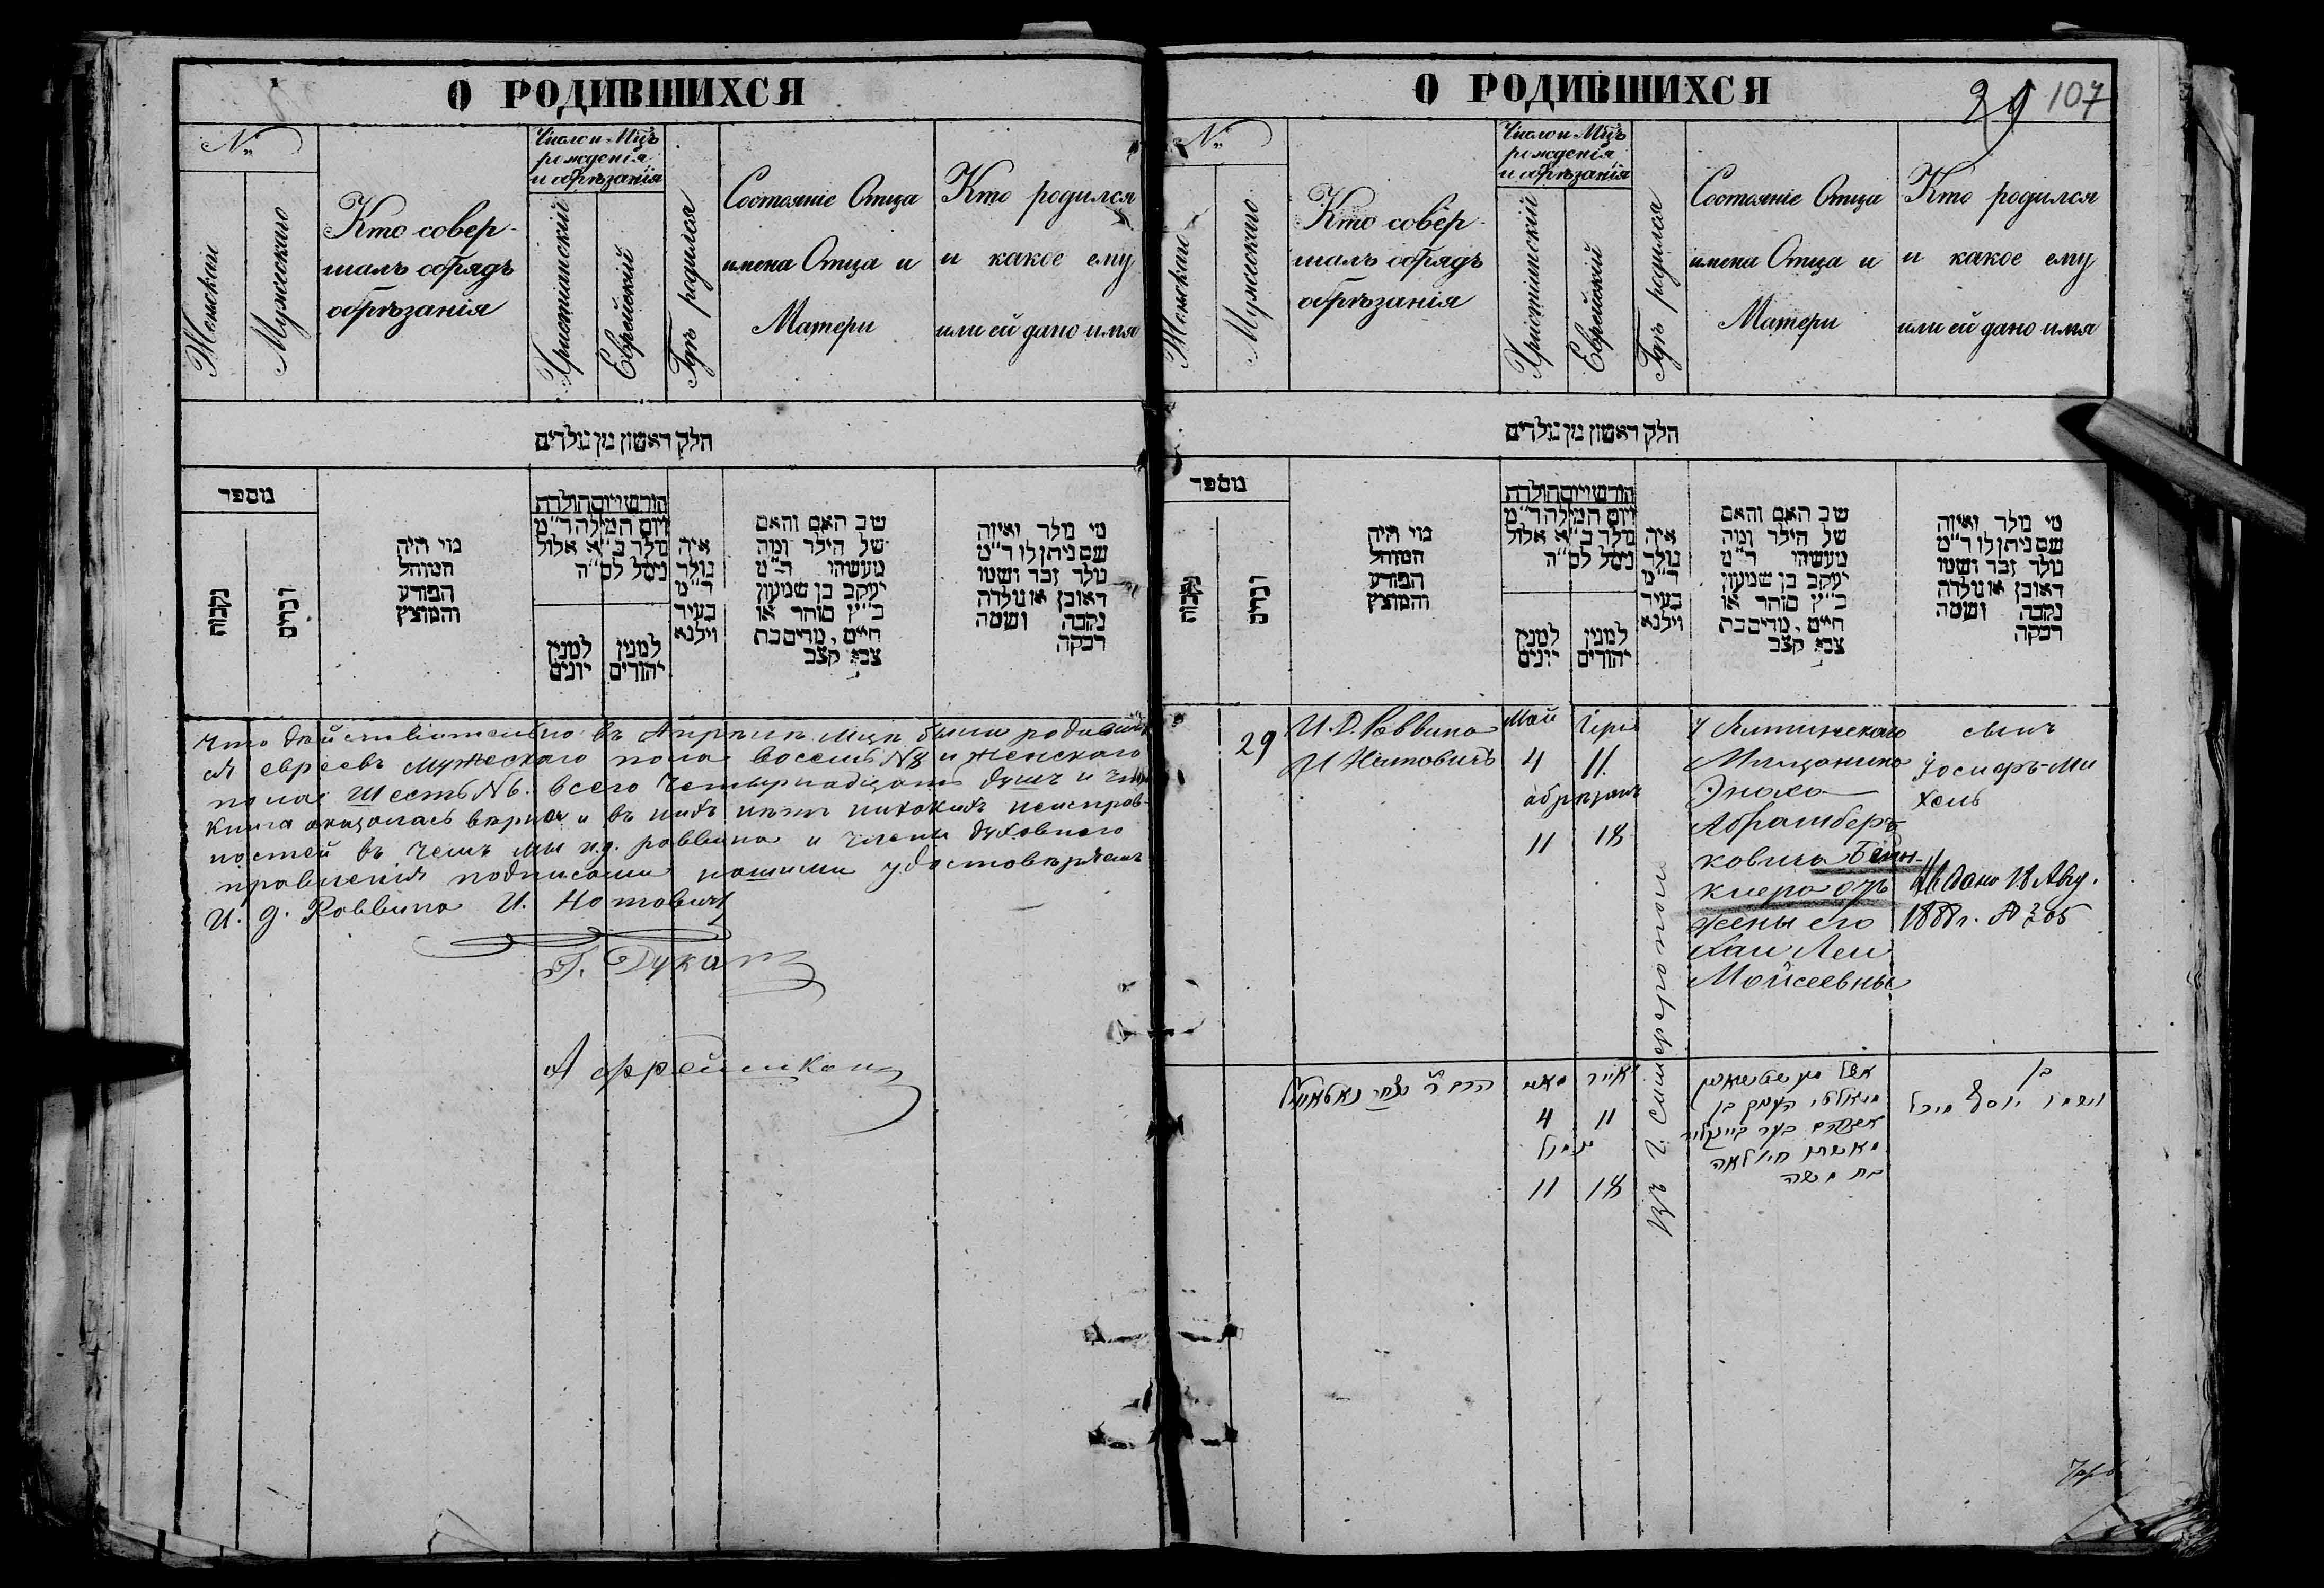 О РОДИВШИХСЯ
№
Женскаго
Мужескаго
Кто совер-
шалъ обрядъ
обрѣзанія
Число и Мцъ
рожденія
и обрѣзанія
Христіанскій
Еврейскій
Гдѣ родился
Состояніе Отца
имена Отца и
Матери
Кто родился
и какое ему
или ей дано имя
חלק ראשון מן נולדים
מספר
נקבות
זכרים
מי היה
המוהל
הפורע
והמוצץ
חודש ויום הולדת
ויום המילה ד״מ
נולד ב״א אלול
נימל לס״ה
למנין
יונים
למנין
יהודים
איה
נולד
ד״מ
בעיר
ווילנא
שב האם והאם
של הילד ומה
מעשיהו ד״מ
יעקב בן שמעון
כ״ץ סוחר או
חיים, מרים בת
צבי קצב
מי נולד ואיזה
שם ניתן לו ד״מ
נולד זכר ושמו
ראובן או נולדה
נקבה ושמה
רבקה
что дѣйствительно въ Апрѣлѣ мцѣ были родивших
ся евреевъ мужескаго пола восемь №8 и женскаго
пола шесть №6. всего четырнадцать душъ и что
книга оказалась вѣрна и въ ней нѣтъ никакихъ неисправ-
ностей въ чемъ мы и.д. раввина и члены духовнаго
правленія подписами нашими удостовѣряемъ
И. д. Раввина И. Нотовичъ
Г. Дуканъ
А Фрейликман
О РОДИВШИХСЯ
29 107
№
Женскаго
Мужескаго
Кто совер-
шалъ обрядъ
обрѣзанія
Число и Мцъ
рожденія
и обрѣзанія
Христіанскій
Еврейскій
Гдѣ родился
Состояніе Отца
имена Отца и
Матери
Кто родился
и какое ему
или ей дано имя
חלק ראשון מן נולדים
מספר
נקבות
זכרים
מי היה
המוהל
הפורע
והמוצץ
חודש ויום הולדת
ויום המילה ד״מ
נולד ב״א אלול
נימל לס״ה
למנין
יונים
למנין
יהודים
איה
נולד
ד״מ
בעיר
ווילנא
שב האם והאם
של הילד ומה
מעשיהו ד״מ
יעקב בן שמעון
כ״ץ סוחר או
חיים, מרים בת
צבי קצב
מי נולד ואיזה
שם ניתן לו ד״מ
נולד זכר ושמו
ראובן או נולדה
נקבה ושמה
רבקה
29
И. Д. Раввина
И Нотовичъ
Май
4 11
обрѣзанъ
11 18
Въ г. Симферополѣ
У Ялтинскаго
Мѣщанина
Эноха
Абрамбер-
ковича Бейн-
клера отъ
жены его
Хаи Леи
Мойсеевны
сынъ
Іосифъ-Ми
хель
дано 18 Авг.
1888 г. № 305
מאי
אייר
4 11
נימול
11 18
ואשתו חי׳ לאה
בת משה
בן
ושמו יוסף מיכל